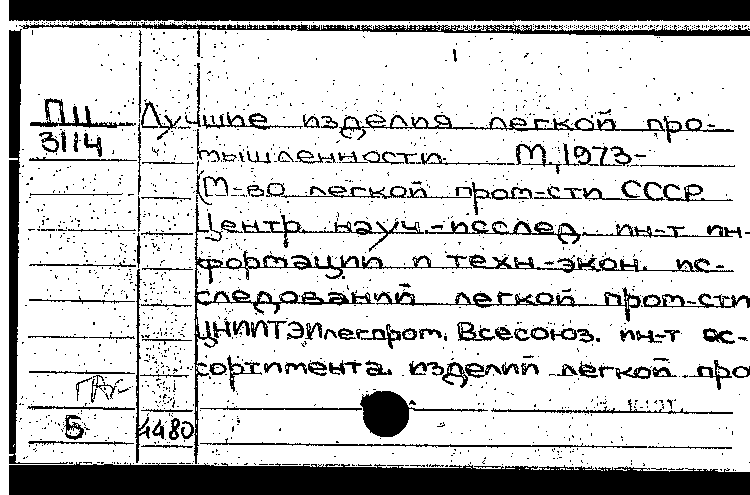 П11
3114
Лучшие изделия легкой про-
мышленности. М., 1973-
(М-во легкой пром-сти СССР.
Центр. науч.-исслед. ин-т ин-
формации и техн.-экон. ис-
следований легкой пром-сти
ЦНИИТЭИлегпром. Всесоюз. ин-т ас-
сортимента изделий легкой про
Б 4480